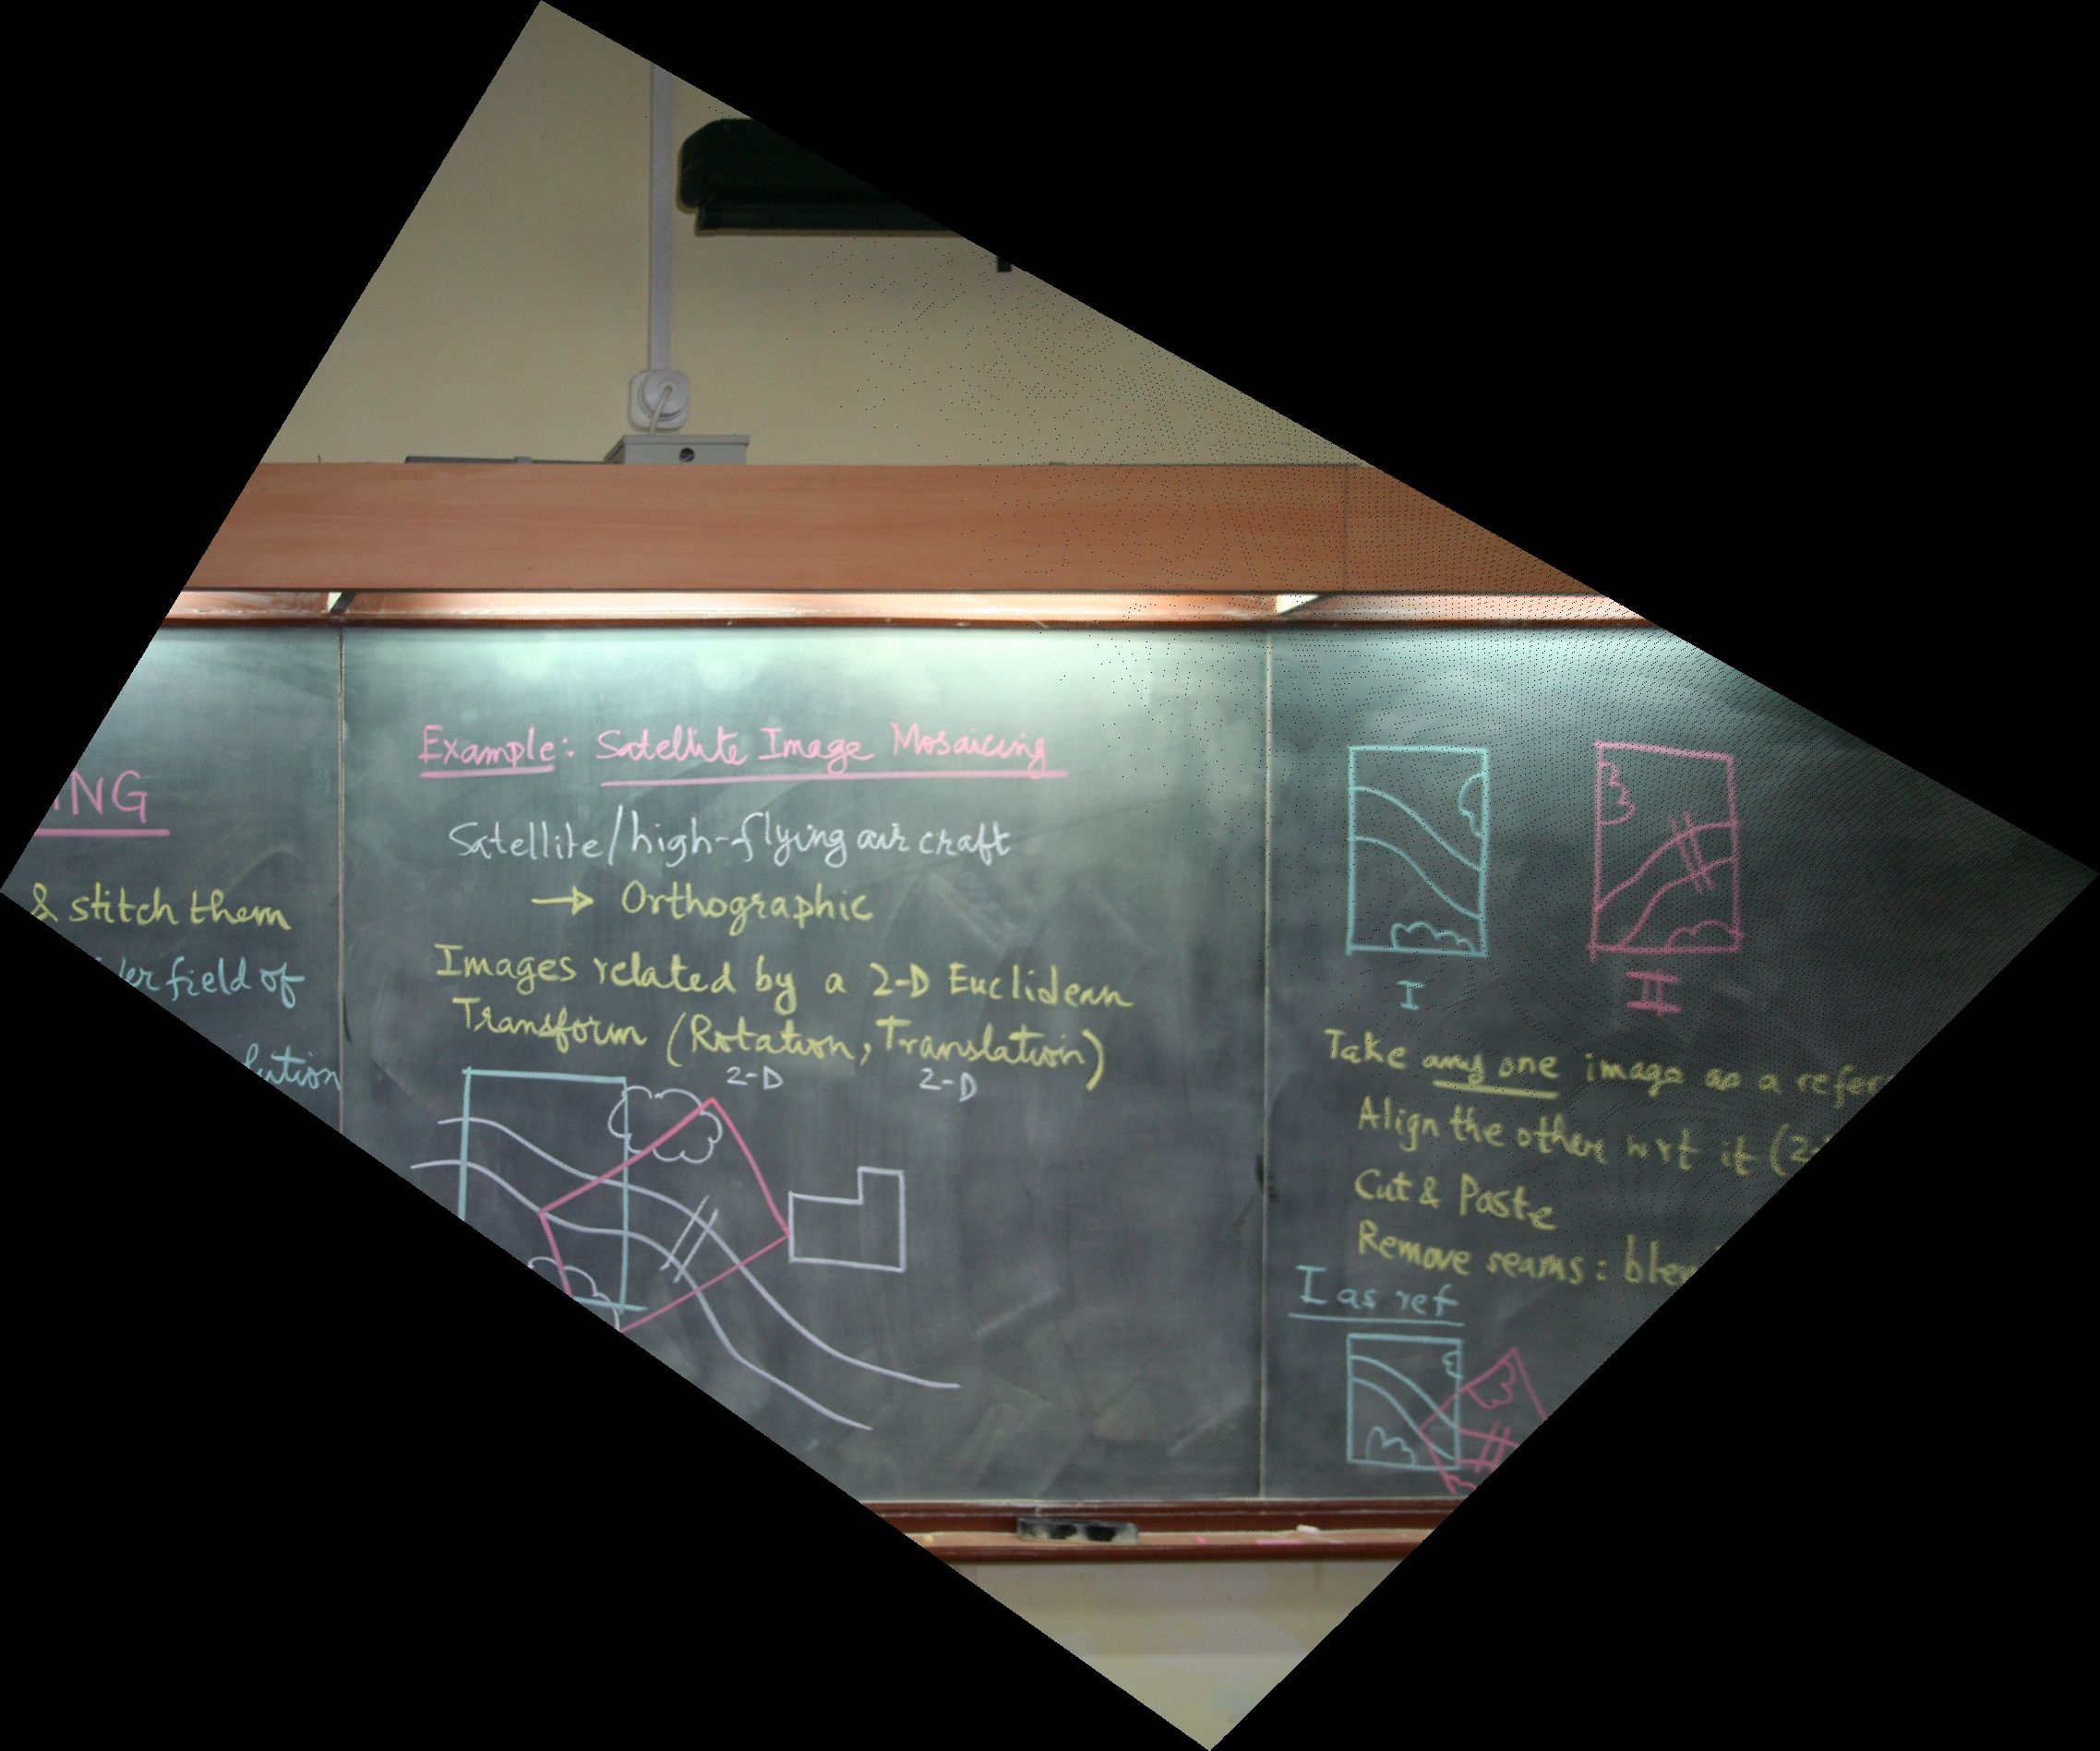 NG
& stitch them
field of
Example: Satellite Image Mosaicing
Satellite/high-flying air craft
→ Orthographic
Images related by a 2-D Euclidean
Transform (Rotation, Translation)
2-D 2-D
I II
Take any one image as a refer
Align the other wrt it (2-
Cut & Paste
Remove seams: blen
I as ref